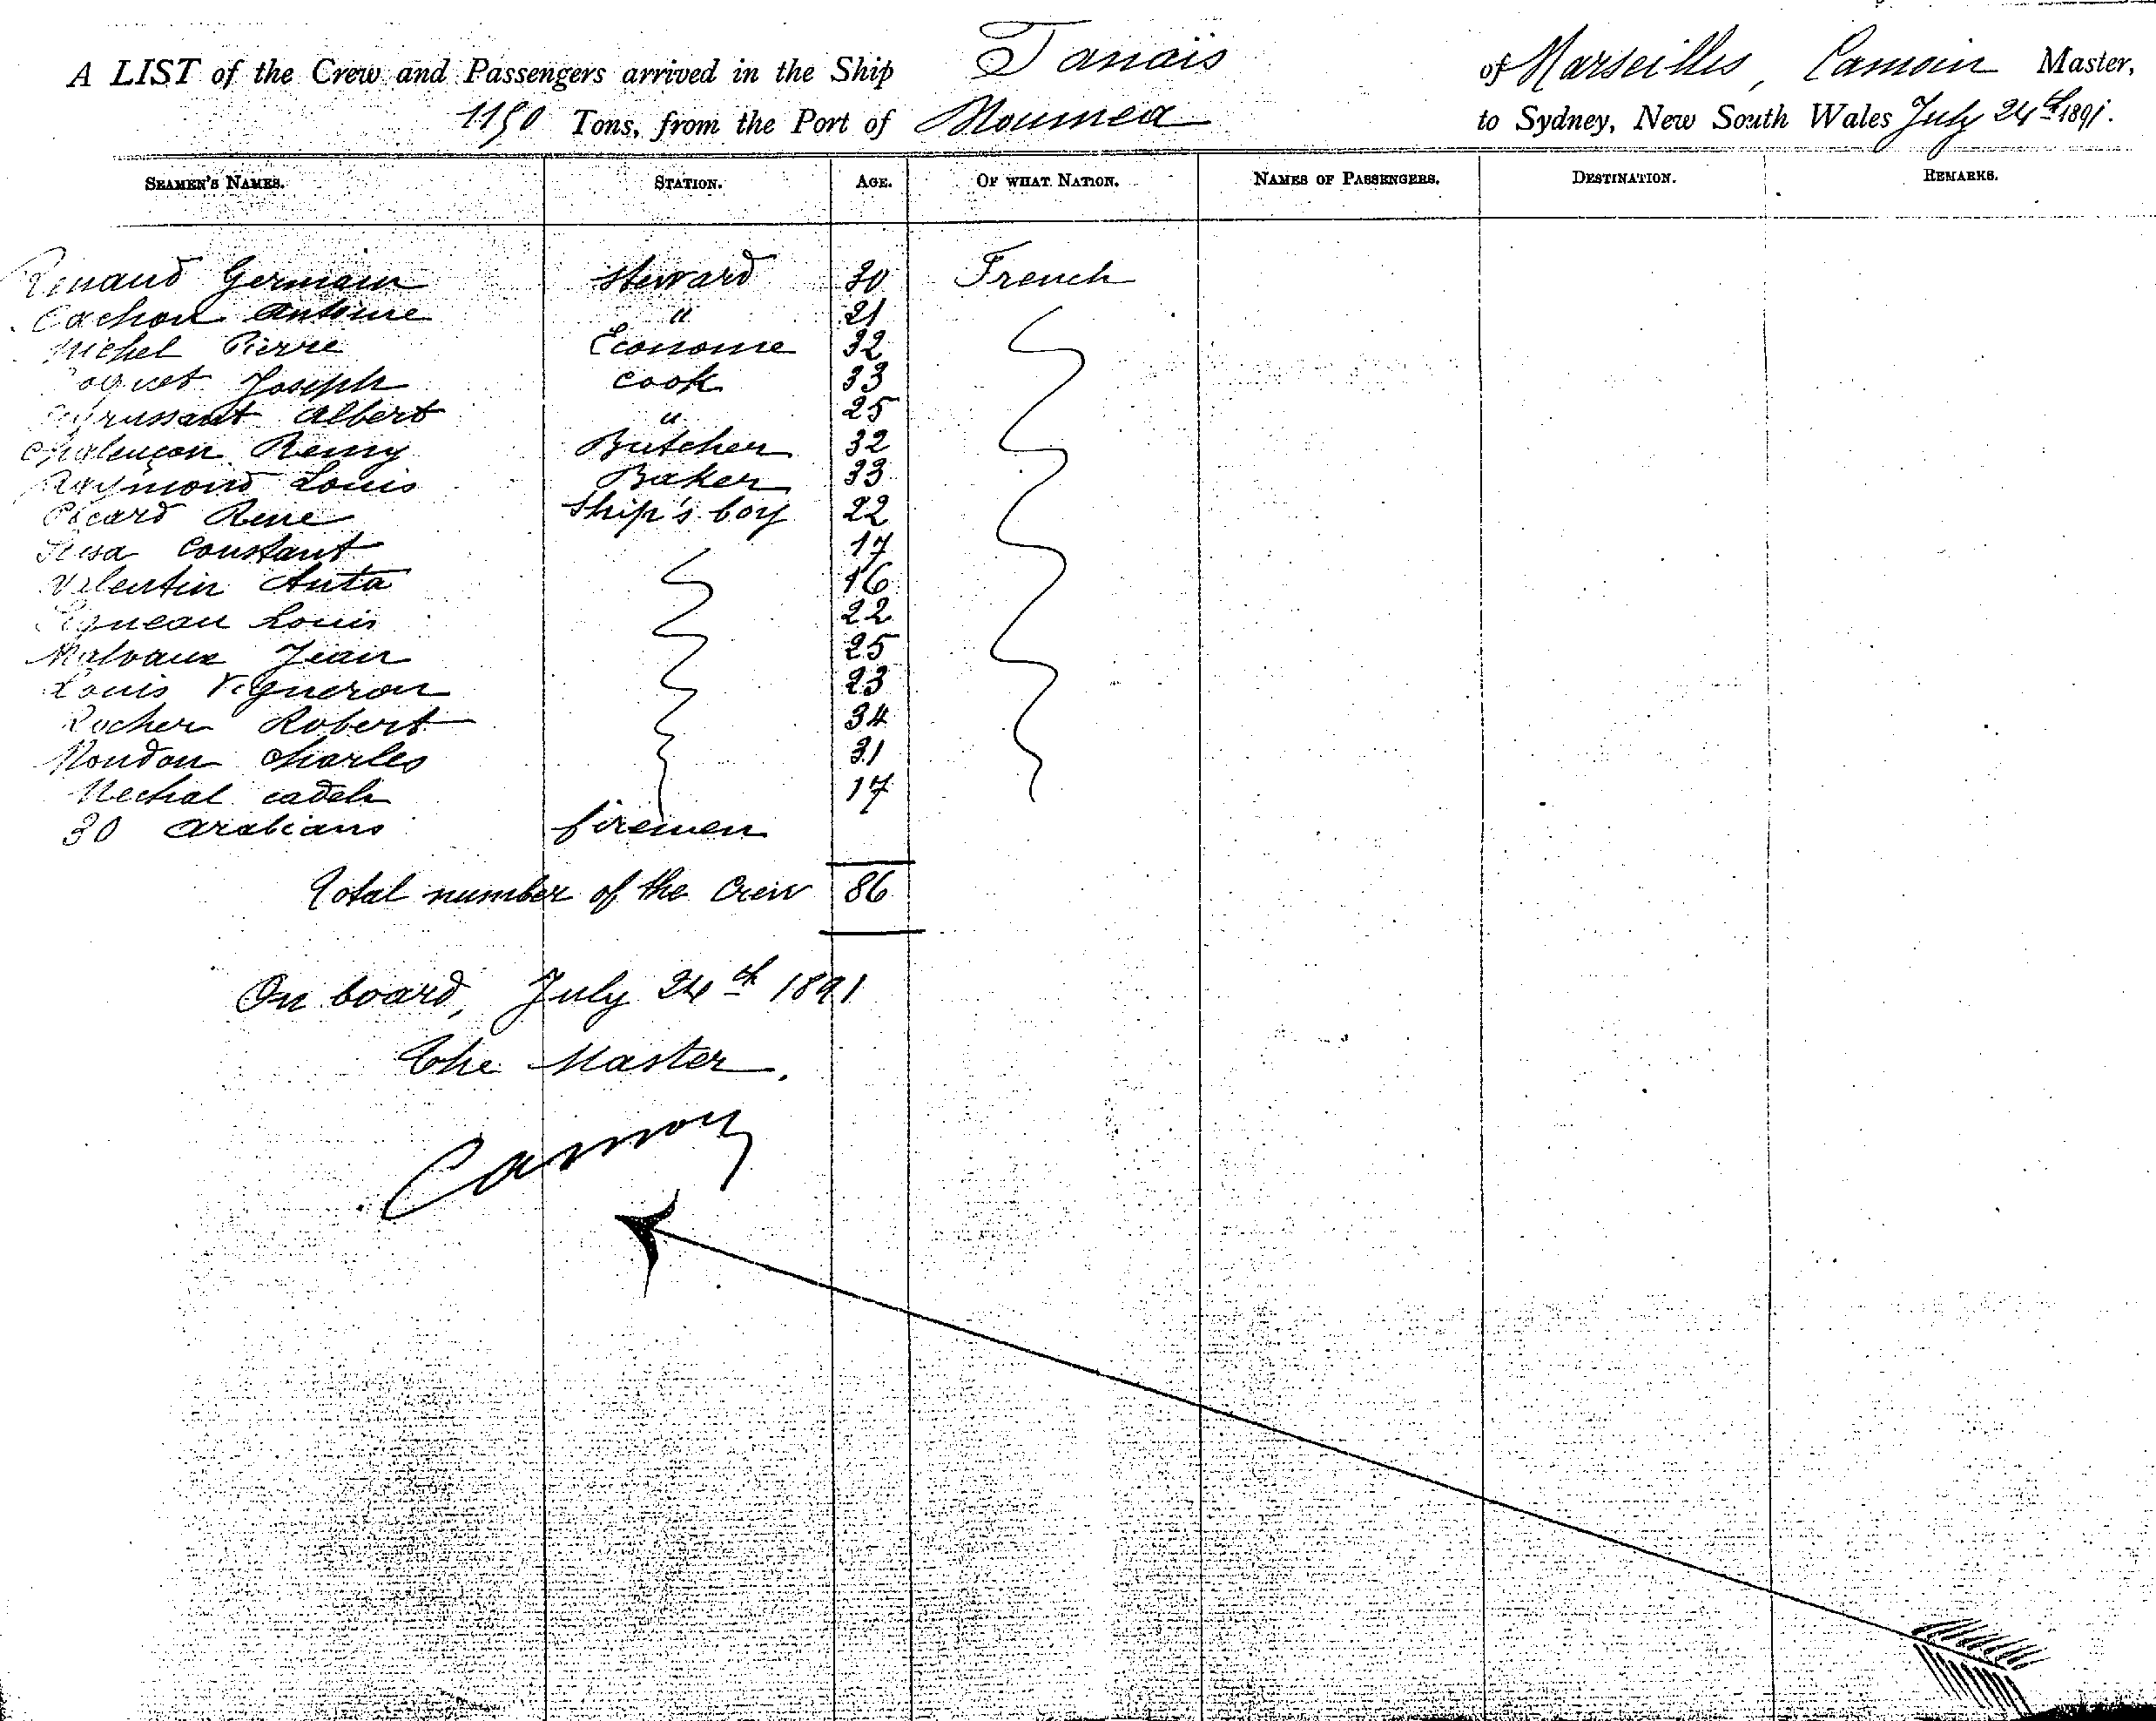 A LIST of the Crew and Passengers arrived in the Ship Tanaïs of Marseilles, Camoin Master,
1150 Tons, from the Port of Noumea to Sydney, New South Wales July 24th 1891.
SEAMEN'S NAMES. STATION. AGE. OF WHAT NATION. NAMES OF PASSENGERS. DESTINATION. REMARKS.
Renaud Germain steward 30 French
Cachon Antoine " 21
Michel Pierre Econome 32
Joseph cook 33
Albert " 25
Chalençon Remy Butcher 32
Raymond Louis Baker 33
Picard Rene Ship's boy 22
Constant 17
Valentin Anta 16
Louis 22
Malvaux Jean 25
Louis Vigneron 23
Rocher Robert 34
Rondon Charles 31
Mechal cadeh 17
30 arabians firemen
Total number of the Crew 86
On board, July 24th 1891
The Master.
Camoin